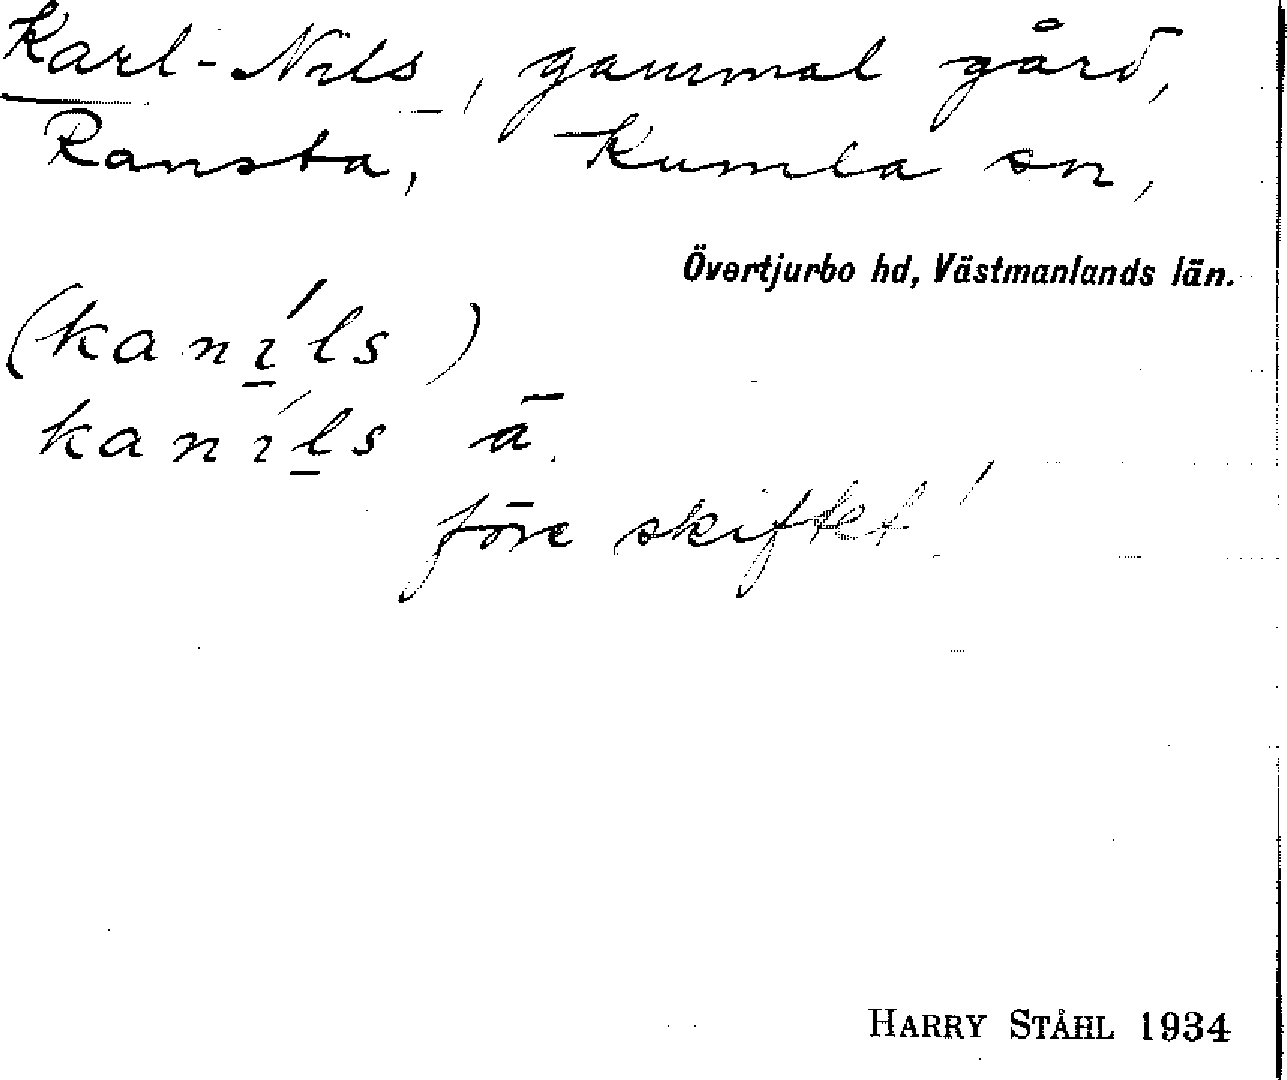 Karl-Nils, gammal gård,
Ransta, Kumla sn,
Övertjurbo hd, Västmanlands län.
(kanı̲́ls)
kanı́l̲s ā.
före skiftet!
HARRY STÅHL 1934